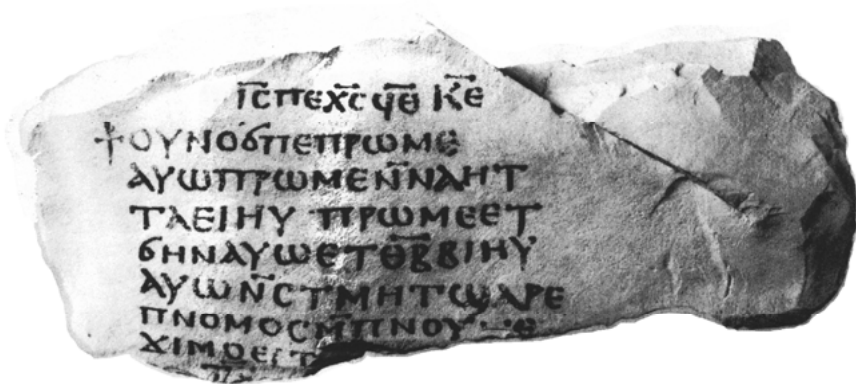 ⲓ̅ⲥ̅ⲡⲉⲭ̅ⲥ̅ ϥ̅ⲑ̅ ⲕ̅ⲉ̅
⳨ⲟⲩⲛⲟϭⲡⲉⲡⲣⲱⲙⲉ
ⲁⲩⲱⲡⲣⲱⲙⲉⲛ̅ⲛⲁⲏⲧ
ⲧⲁⲉⲓⲏⲩ ⲡⲣⲱⲙⲉⲉⲧ
ϭⲏⲛⲁⲩⲱⲉⲧⲑ̅ⲃ̅ⲃⲓⲏⲩ
ⲁⲩⲱⲛ̅ⲥⲧⲙⲏⲧϣⲁⲣⲉ
ⲡⲛⲟⲙⲟⲥⲙ̅ⲡⲛⲟⲩⲧⲉ
ϫⲓⲙⲟⲉⲓⲧ